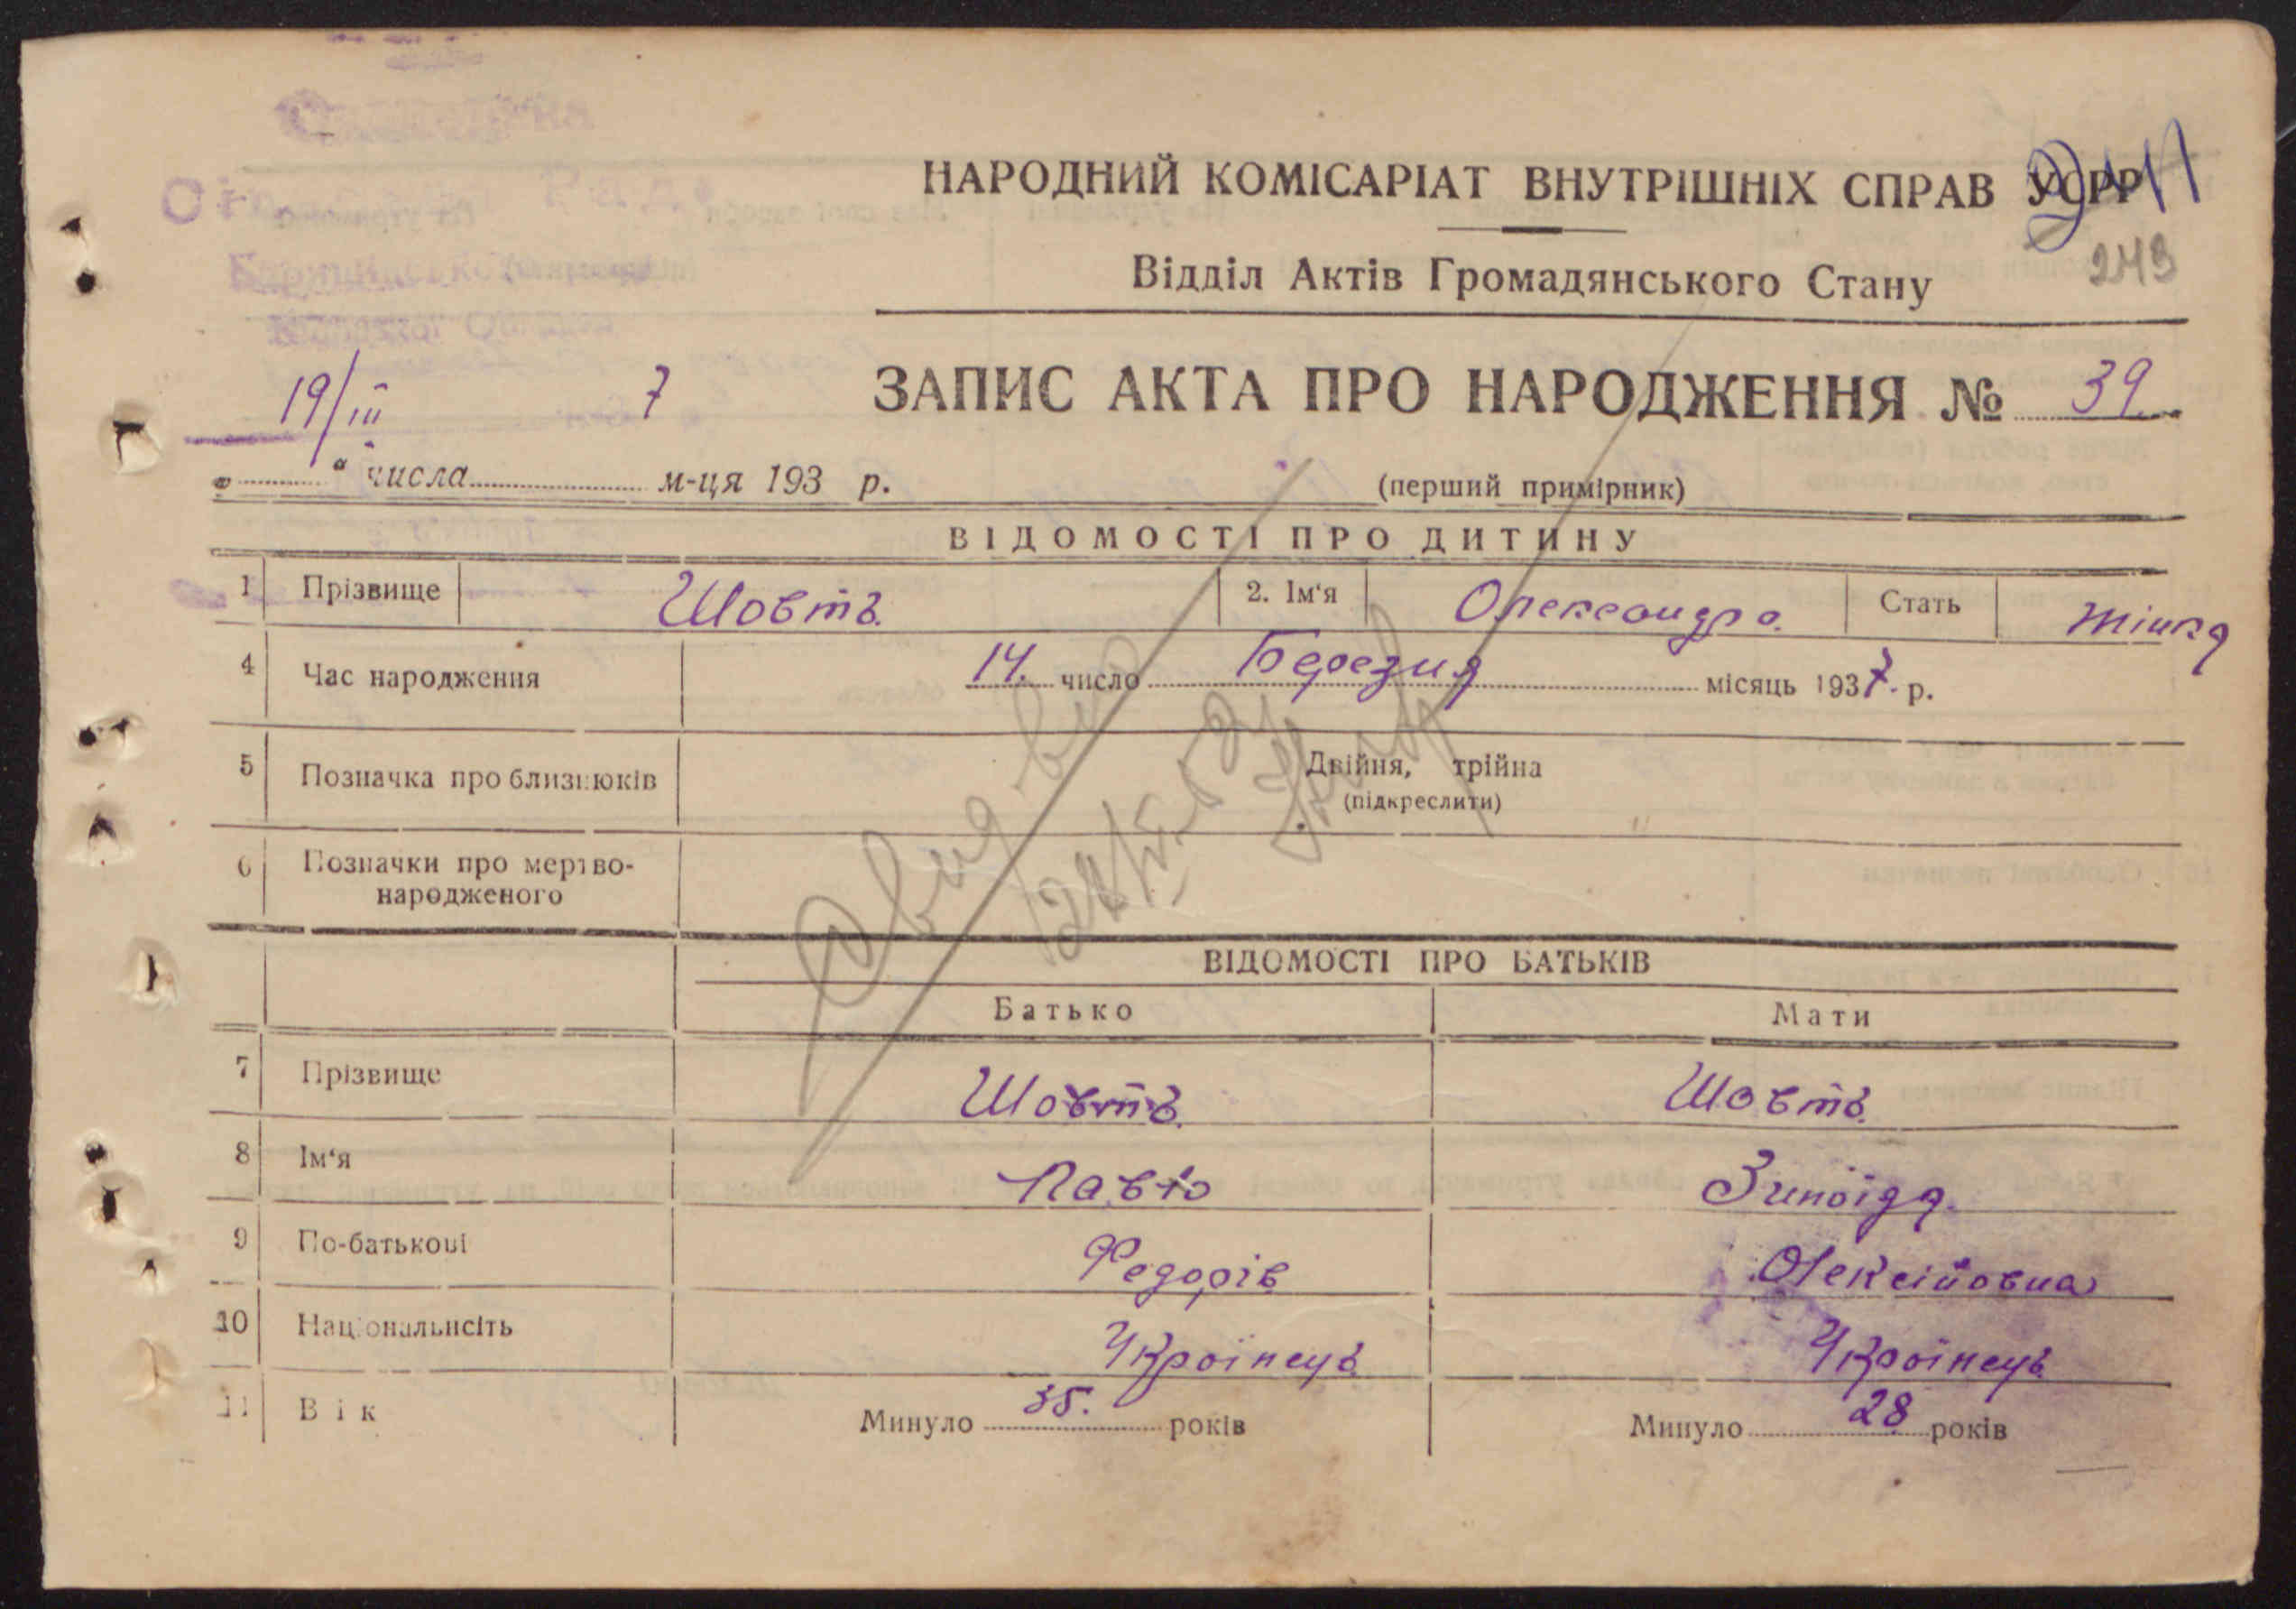 НАРОДНИЙ КОМІСАРІАТ ВНУТРІШНІХ СПРАВ УСРР
243
Відділ Актів Громадянського Стану
19/III 7
ЗАПИС АКТА ПРО НАРОДЖЕННЯ № 39.
„ “ числа м-ця 193 р.
(перший примірник)
ВІДОМОСТІ ПРО ДИТИНУ
1 Прізвище Шовть. 2. Ім'я Олександра. Стать жінка
4 Час народження 14. число Березня місяць 1937. р.
5 Позначка про близнюків Двійня, трійна
(підкреслити)
6 Позначки про мертво-
народженого
ВІДОМОСТІ ПРО БАТЬКІВ
Батько Мати
7 Прізвище Шовть. Шовть.
8 Ім'я Павло Зиноїда.
9 По-батькові Федорів Олексійовна
10 Національнсіть Українець Українець
11 Вік Минуло 35. років Минуло 28 років